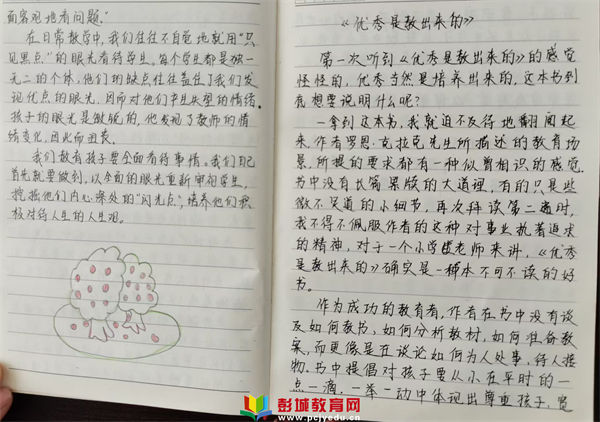 面客观地看问题."
在日常教学中,我们往往不自觉地就用"只
见黑点"的眼光看待学生。每个学生都是独一
无二的个体,他们的缺点往往盖住了我们发
现优点的眼光,因而对他们产生失望的情绪.
孩子的眼光是敏锐的,他发现了教师的情
绪变化,因此而沮丧.
我们教育孩子要全面看待事情。我们自己
首先就要做到,以全面的眼光重新审视学生,
挖掘他们内心深处的"闪光点",培养他们积
极对待人生的人生观.
《优秀是教出来的》
第一次听到《优秀是教出来的》的感觉
怪怪的,优秀当然是培养出来的,这本书到
底想要说明什么呢?
一拿到这本书,我就迫不及待地翻阅起
来,作者罗恩·克拉克先生所描述的教育场
景,所提的要求都有一种似曾相识的感觉.
书中没有长篇累牍的大道理,有的只是些
微不足道的小细节,再次拜读第二遍时,
我不得不佩服作者的这种对事业执着追求
的精神,对于一个小学老师来讲,《优秀
是教出来的》确实是一本不可不读的好
书。
作为成功的教育者,作者在书中没有谈
及如何教书,如何分析教材,如何准备教
案,而更像是在谈论如何为人处事,待人接
物.书中提倡对孩子要从小在平时的一
点一滴,一举一动中体现出尊重孩子,宽
彭城教育网
www.pcjyedu.cn